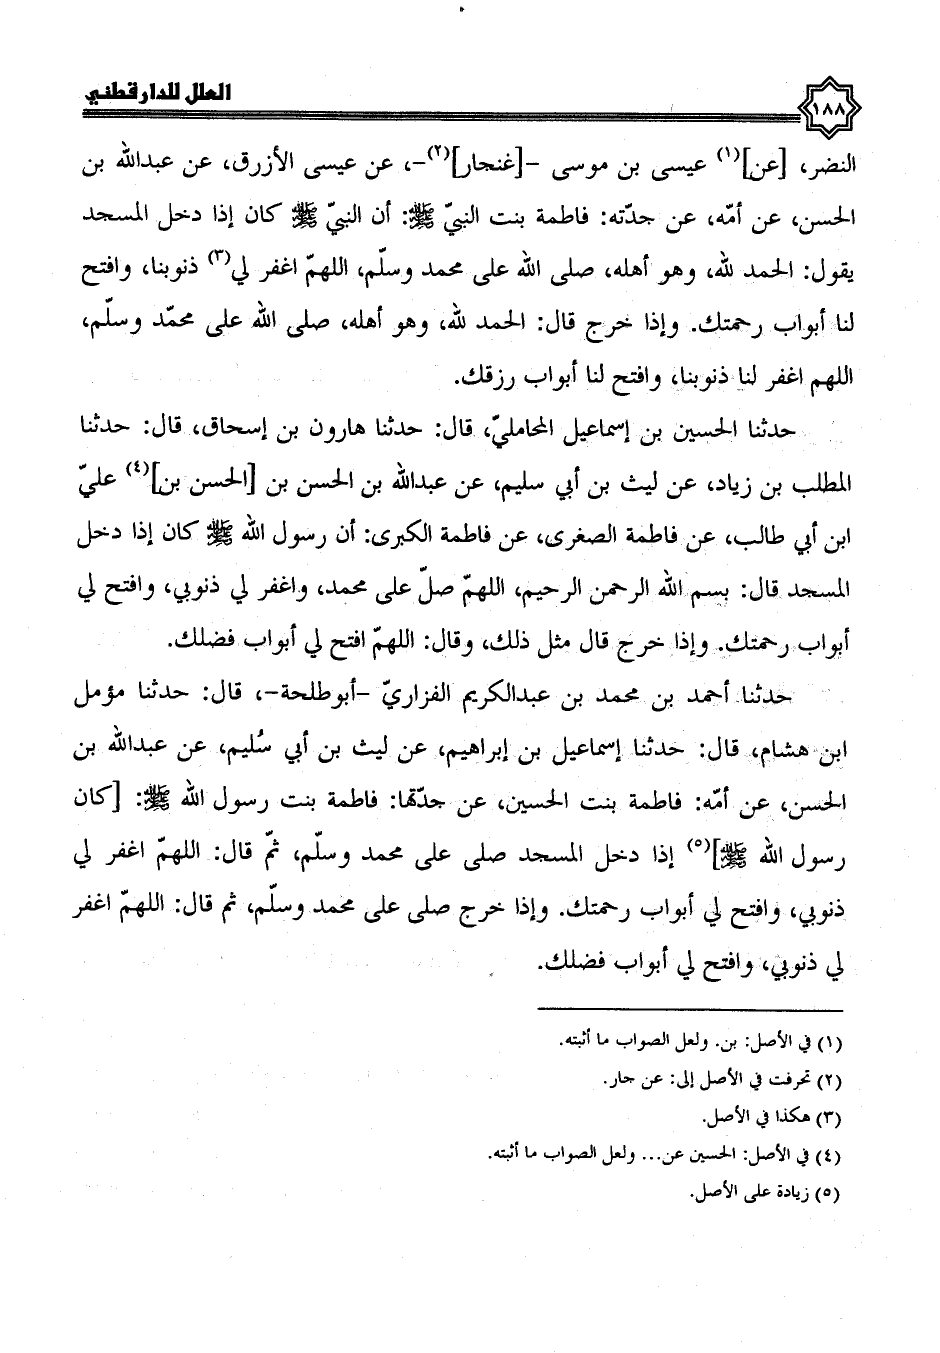 العلل للدارقطني
١٨٨
النضر، [عن](١) عيسى بن موسى -[غنجار](٢)-، عن عيسى الأزرق، عن عبدالله بن
الحسن، عن أمّه، عن جدّته: فاطمة بنت النبيّ ﷺ: أن النبيّ ﷺ كان إذا دخل المسجد
يقول: الحمد لله، وهو أهله، صلى الله على محمد وسلّم، اللهمّ اغفر لي(٣) ذنوبنا، وافتح
لنا أبواب رحمتك. وإذا خرج قال: الحمد لله، وهو أهله، صلى الله على محمّد وسلّم،
اللهم اغفر لنا ذنوبنا، وافتح لنا أبواب رزقك.
حدثنا الحسين بن إسماعيل المحامليّ، قال: حدثنا هارون بن إسحاق، قال: حدثنا
المطلب بن زياد، عن ليث بن أبي سليم، عن عبدالله بن الحسن بن [الحسن بن](٤) عليّ
ابن أبي طالب، عن فاطمة الصغرى، عن فاطمة الكبرى: أن رسول الله ﷺ كان إذا دخل
المسجد قال: بسم الله الرحمن الرحيم، اللهمّ صلّ على محمد، واغفر لي ذنوبي، وافتح لي
أبواب رحمتك. وإذا خرج قال مثل ذلك، وقال: اللهمّ افتح لي أبواب فضلك.
حدثنا أحمد بن محمد بن عبدالكريم الفزاريّ -أبوطلحة-، قال: حدثنا مؤمل
ابن هشام، قال: حدثنا إسماعيل بن إبراهيم، عن ليث بن أبي سُليم، عن عبدالله بن
الحسن، عن أمّه: فاطمة بنت الحسين، عن جدّتها: فاطمة بنت رسول الله ﷺ: [كان
رسول الله ﷺ](٥) إذا دخل المسجد صلى على محمد وسلّم، ثمّ قال: اللهمّ اغفر لي
ذنوبي، وافتح لي أبواب رحمتك. وإذا خرج صلى على محمد وسلّم، ثم قال: اللهمّ اغفر
لي ذنوبي، وافتح لي أبواب فضلك.
(١) في الأصل: بن. ولعل الصواب ما أثبته.
(٢) تحرفت في الأصل إلى: عن حار.
(٣) هكذا في الأصل.
(٤) في الأصل: الحسين عن... ولعل الصواب ما أثبته.
(٥) زيادة على الأصل.